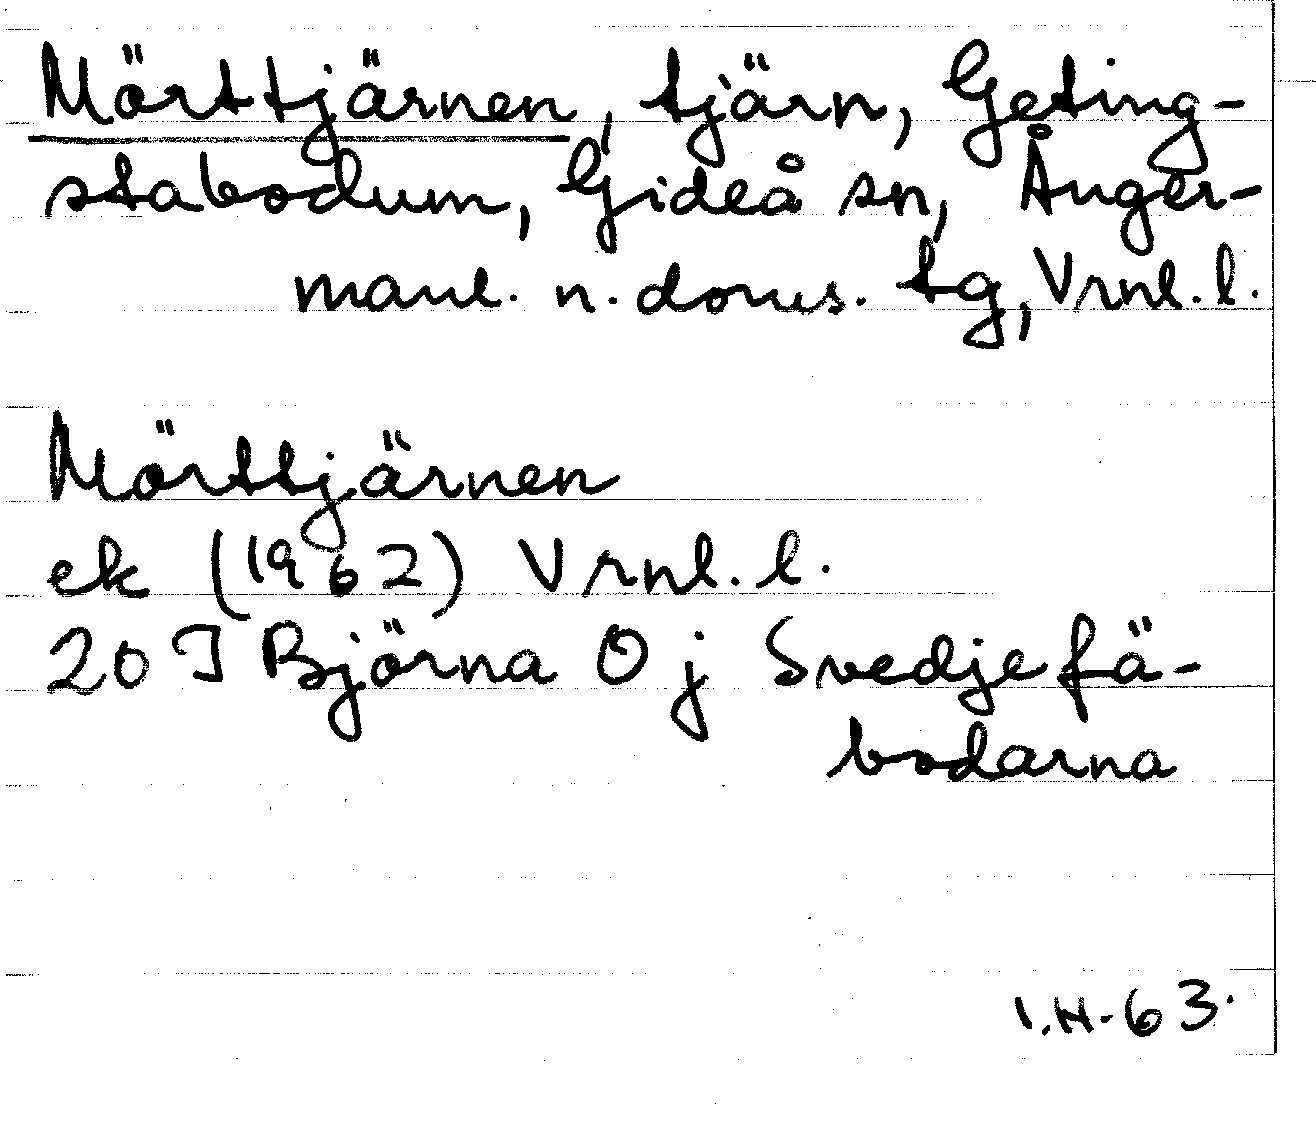 Mörttjärnen, tjärn, Geting-
stabodum, Gideå sn, Ånger-
manl. n. doms. tg, Vrnl. l.
Mörttjärnen
ek (1962) Vrnl. l.
20 I Björna O j Svedjefä-
bodarna
I.H-63.